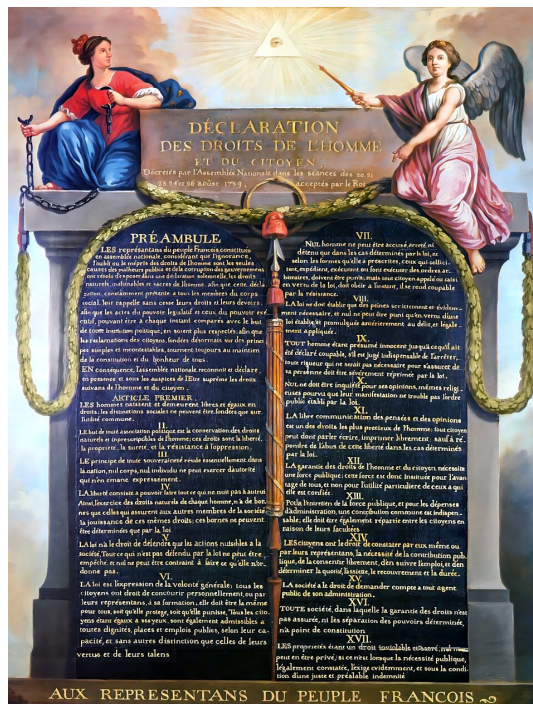 DÉCLARATION
DES DROITS DE L'HOMME
ET DU CITOYEN,
Décretés par l'Assemblée Nationale dans les séances des 20.21
23.24 et 26 août 1789, acceptés par le Roi
PRÉAMBULE
LES représantans du peuple Francois constitués
en assemblée nationale, considérant que l'ignorance,
l'oubli ou le mépris des droits de l'homme sont les seules
causes des malheurs publics et de la corruption des gouvernemens
ont résolu d'exposer dans une déclaration solennelle, les droits
naturels, inaliénables et sacrés de l'homme; afin que cette décla-
ration, constamment présente a tous les membres du corps
social, leur rappelle sans cesse leurs droits et leurs devoirs;
afin que les actes du pouvoir législatif et ceux du pouvoir exé-
cutif, pouvant être a chaque instant comparés avec le but
de toute institution politique, en soient plus respectés; afin que
les reclamations des citoyens, fondées désormais sur des princi-
pes simples et incontestables, tournent toujours au maintien
de la constitution et du bonheur de tous.
EN conséquence, l'assemblée nationale reconnoit et déclare,
en presence et sous les auspices de l'Etre suprême les droits
suivans de l'homme et du citoyen.
ARTICLE PREMIER.
LES hommes naissent et demeurent libres et égaux en
droits; les distinctions sociales ne peuvent être fondées que sur
l'utilité commune.
II.
LE but de toute association politique est la conservation des droits
naturels et imprescriptibles de l'homme; ces droits sont la liberté,
la propriété, la sureté, et la résistance à l'oppression.
III.
LE principe de toute souveraineté réside essentiellement dans
la nation, nul corps, nul individu ne peut exercer d'autorité
qui n'en émane expressement.
IV.
LA liberté consiste a pouvoir faire tout ce qui ne nuit pas à autrui
Ainsi, l'exercice des droits naturels de chaque homme, n'a de bor-
nes que celles qui assurent aux autres membres de la société
la jouissance de ces mêmes droits; ces bornes ne peuvent
être déterminées que par la loi
V.
LA loi n'a le droit de défendre que les actions nuisibles à la
société. Tout ce qui n'est pas défendu par la loi ne peut être
empêché, et nul ne peut être contraint à faire ce qu'elle n'or-
donne pas.
VI.
LA loi est l'expression de la volonté générale; tous les
citoyens ont droit de concourir personnellement, ou par
leurs représentans, à sa formation; elle doit être la même
pour tous, soit qu'elle protege, soit qu'elle punisse. Tous les cito-
yens étant égaux à ses yeux, sont également admissibles à
toutes dignités, places et emplois publics, selon leur ca-
pacité, et sans autres distinction que celles de leurs
vertus et de leurs talens
VII.
NUL homme ne peut être accusé, arreté, ni
détenu que dans les cas déterminés par la loi, et
selon les formes qu'elle a prescrites, ceux qui sollici-
tent, expédient, exécutent ou font exécuter des ordres ar-
bitraires, doivent être punis; mais tout citoyen appelé ou saisi
en vertu de la loi, doit obéir à l'instant, il se rend coupable
par la résistance.
VIII.
LA loi ne doit établir que des peines strictement et évidem-
ment nécessaires, et nul ne peut être puni qu'en vertu d'une
loi établie et promulguée antérierement au délit, et légale-
ment appliquée.
IX.
TOUT homme étant présumé innocent jusqu'a ce qu'il ait
été déclaré coupable, s'il est jugé indispensable de l'arrêter,
toute rigueur qui ne serait pas nécessaire pour s'assurer de
sa personne doit être sévèrement réprimée par la loi.
X.
NUL ne doit être inquiété pour ses opinions, mêmes religi-
euses pourvu que leur manifestation ne trouble pas l'ordre
public établi par la loi.
XI.
LA libre communication des pensées et des opinions
est un des droits les plus precieux de l'homme; tout citoyen
peut donc parler écrire, imprimer librement, sauf à ré-
pondre de l'abus de cette liberté dans les cas déterminés
par la loi.
XII.
LA garantie des droits de l'homme et du citoyen nécessite
une force publique; cette force est donc instituée pour l'avan-
tage de tous, et non pour l'utilité particuliere de ceux a qui
elle est confiée.
XIII.
Pour l'entretien de la force publique, et pour les dépenses
d'administration, une contribution commune est indispen-
sable; elle doit être également répartie entre les citoyens en
raison de leurs facultées
XIV.
LES citoyens ont le droit de constater par eux même ou
par leurs représentans, la nécessité de la contribution pub-
lique, de la consentir librement, d'en suivre l'emploi, et d'en
déterminer la quotité, l'assiette, le recouvrement et la durée.
XV.
LA société a le droit de demander compte a tout agent
public de son administration.
XVI.
TOUTE société, dans laquelle la garantie des droits n'est
pas assurée, ni les séparation des pouvoirs déterminée,
n'a point de constitution
XVII.
LES proprietés étant un droit inviolable et sacré, nul
peut en être privé, si ce n'est lorsque la nécessité publique,
légalement constatée, l'exige évidemment, et sous la condi-
tion d'une juste et préalable indemnité
AUX REPRESENTANS DU PEUPLE FRANCOIS